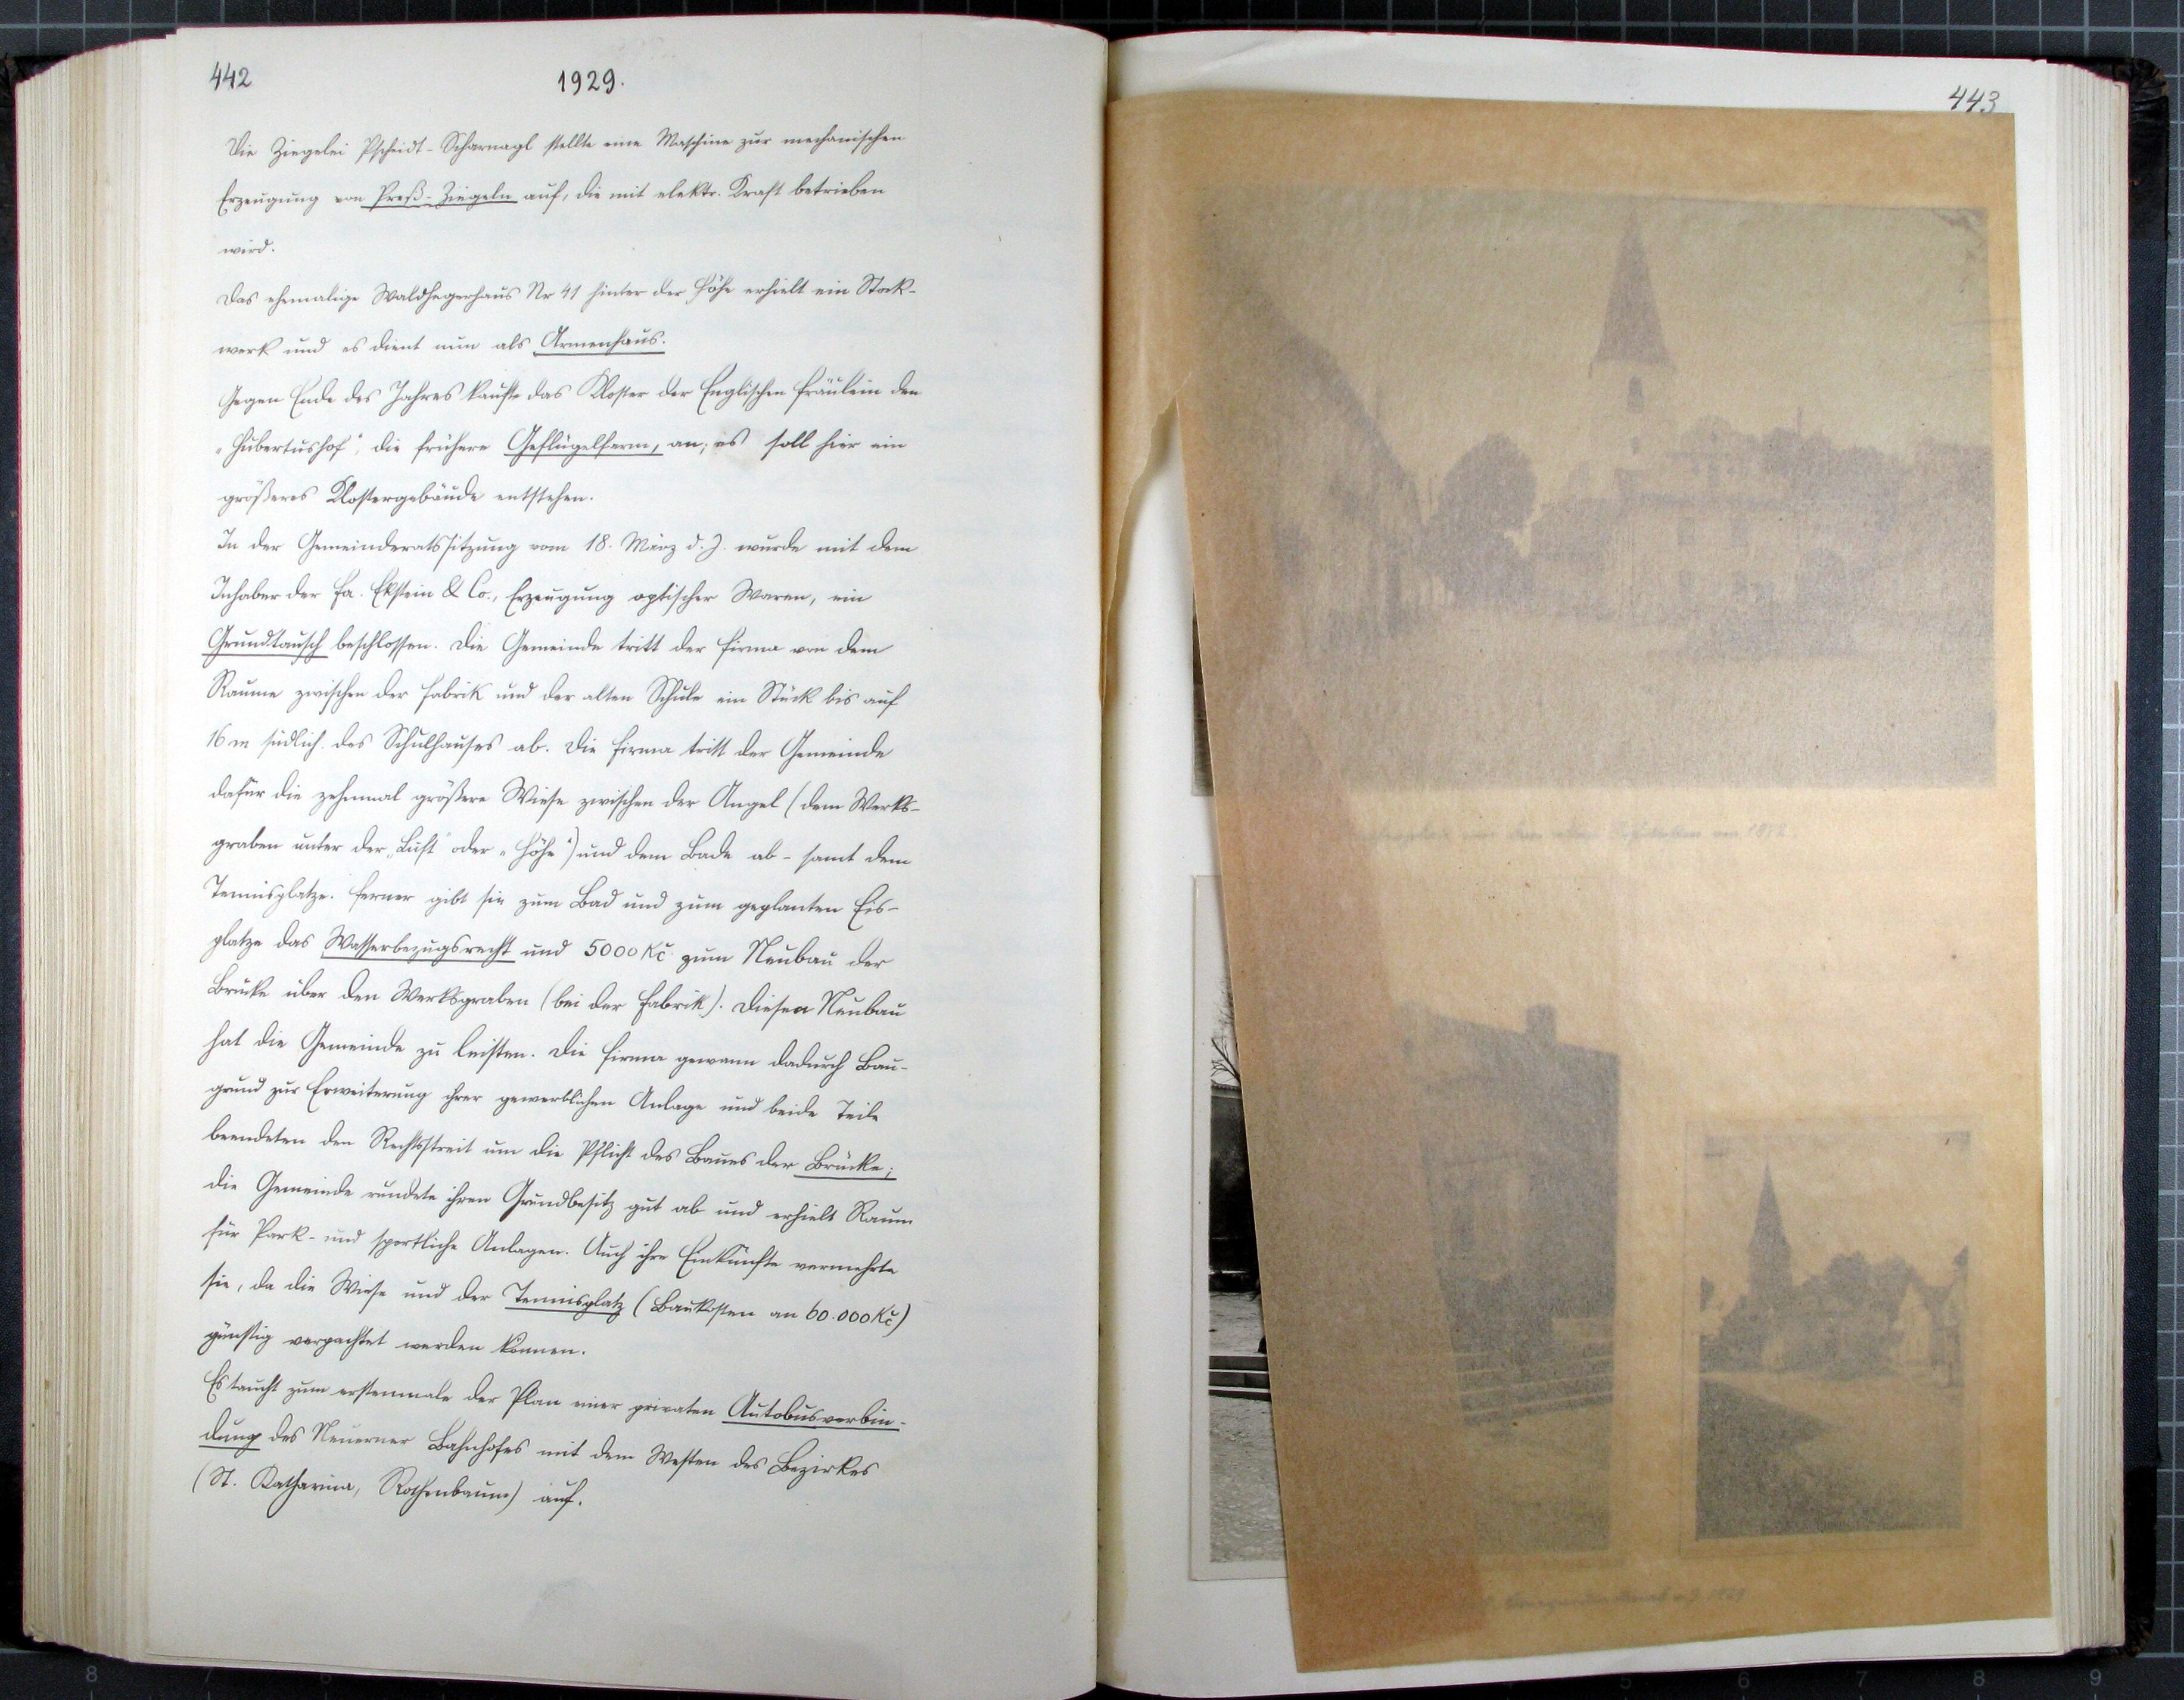 442
1929.
Die Ziegelei Pscheidt-Scharnagl stellte eine Maschine zur mechanischen
Erzeugung von Preß-Ziegeln auf, die mit elektr. Kraft betrieben
wird.
Das ehemalige Waldhegerhaus Nr 41 hinter der Höhe erhielt ein Stock-
werk und es dient nun als Armenhaus.
Gegen Ende des Jahres kaufte das Kloster der Englischen Fräulein den
„Hubertushof", die frühere Geflügelfarm, an; es soll hier ein
größeres Klostergebäude entstehen.
In der Gemeinderatssitzung vom 18. März d. J. wurde mit dem
Inhaber der Fa. Ekstein & Co., Erzeugung optischer Waren, ein
Grundtausch beschlossen. Die Gemeinde tritt der Firma von dem
Raume zwischen der Fabrik und der alten Schule ein Stück bis auf
16 m südlich des Schulhauses ab. Die Firma tritt der Gemeinde
dafür die zehnmal größere Wiese zwischen der Angel (dem Werks-
graben unter der „Luft" oder „Höhe") und dem Bade ab - samt dem
Tennisplatze. Ferner gibt sie zum Bad und zum geplanten Eis-
platze das Wasserbezugsrecht und 5000 Kč zum Neubau der
Brücke über den Werksgraben (bei der Fabrik). Diesen Neubau
hat die Gemeinde zu leisten. Die Firma gewann dadurch Bau-
grund zur Erweiterung ihrer gewerblichen Anlage und beide Teile
beendeten den Rechtsstreit um die Pflicht des Baues der Brücke;
die Gemeinde rundete ihren Grundbesitz gut ab und erhielt Raum
für Park- und sportliche Anlagen. Auch ihre Einkünfte vermehrte
sie, da die Wiese und der Tennisplatz (Baukosten an 60.000 Kč)
günstig verpachtet werden können.
Es taucht zum erstenmale der Plan einer privaten Autobusverbin-
dung des Neuerner Bahnhofes mit dem Westen des Bezirkes
(St. Katharina, Rothenbaum) auf.
443
1872.
1929
8 7
5 6 7 8 9